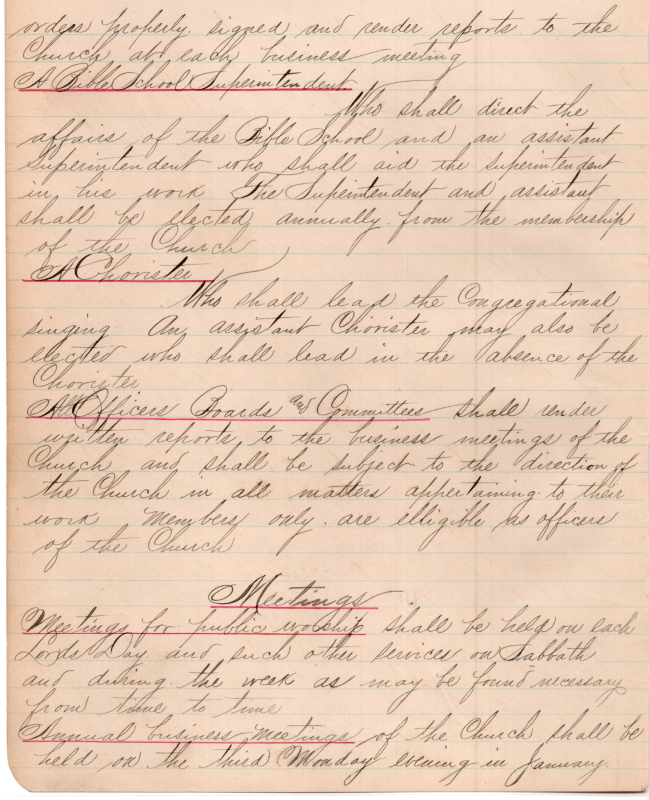 orders properly. signed and render reports to the
Church at each business meeting
A Bible School Superintendent
Who shall direct the
affairs of the Bible School and an assistant
Superintendent who shall aid the superintendent
in his work The Superintendent and assistant
shall be elected annually. from the membership
of the Church
A Chorister
Who shall lead the Congregational
singing. An assistant Chorister may also be
elected who shall lead in the absence of the
Chorister
All Officers Boards and Committees shall render
written reports to the business meetings of the
Church and shall be subject to the direction of
the Church in all matters appertaining to their
work Members only. are elligible as officers
of the Church
Meetings
Meetings for public worship shall be held on each
Lords Day and such other services on Sabbath
and during. the week as may be found necessary
from time to time
Annual business meetings of the Church shall be
held on the third Monday evening in January.